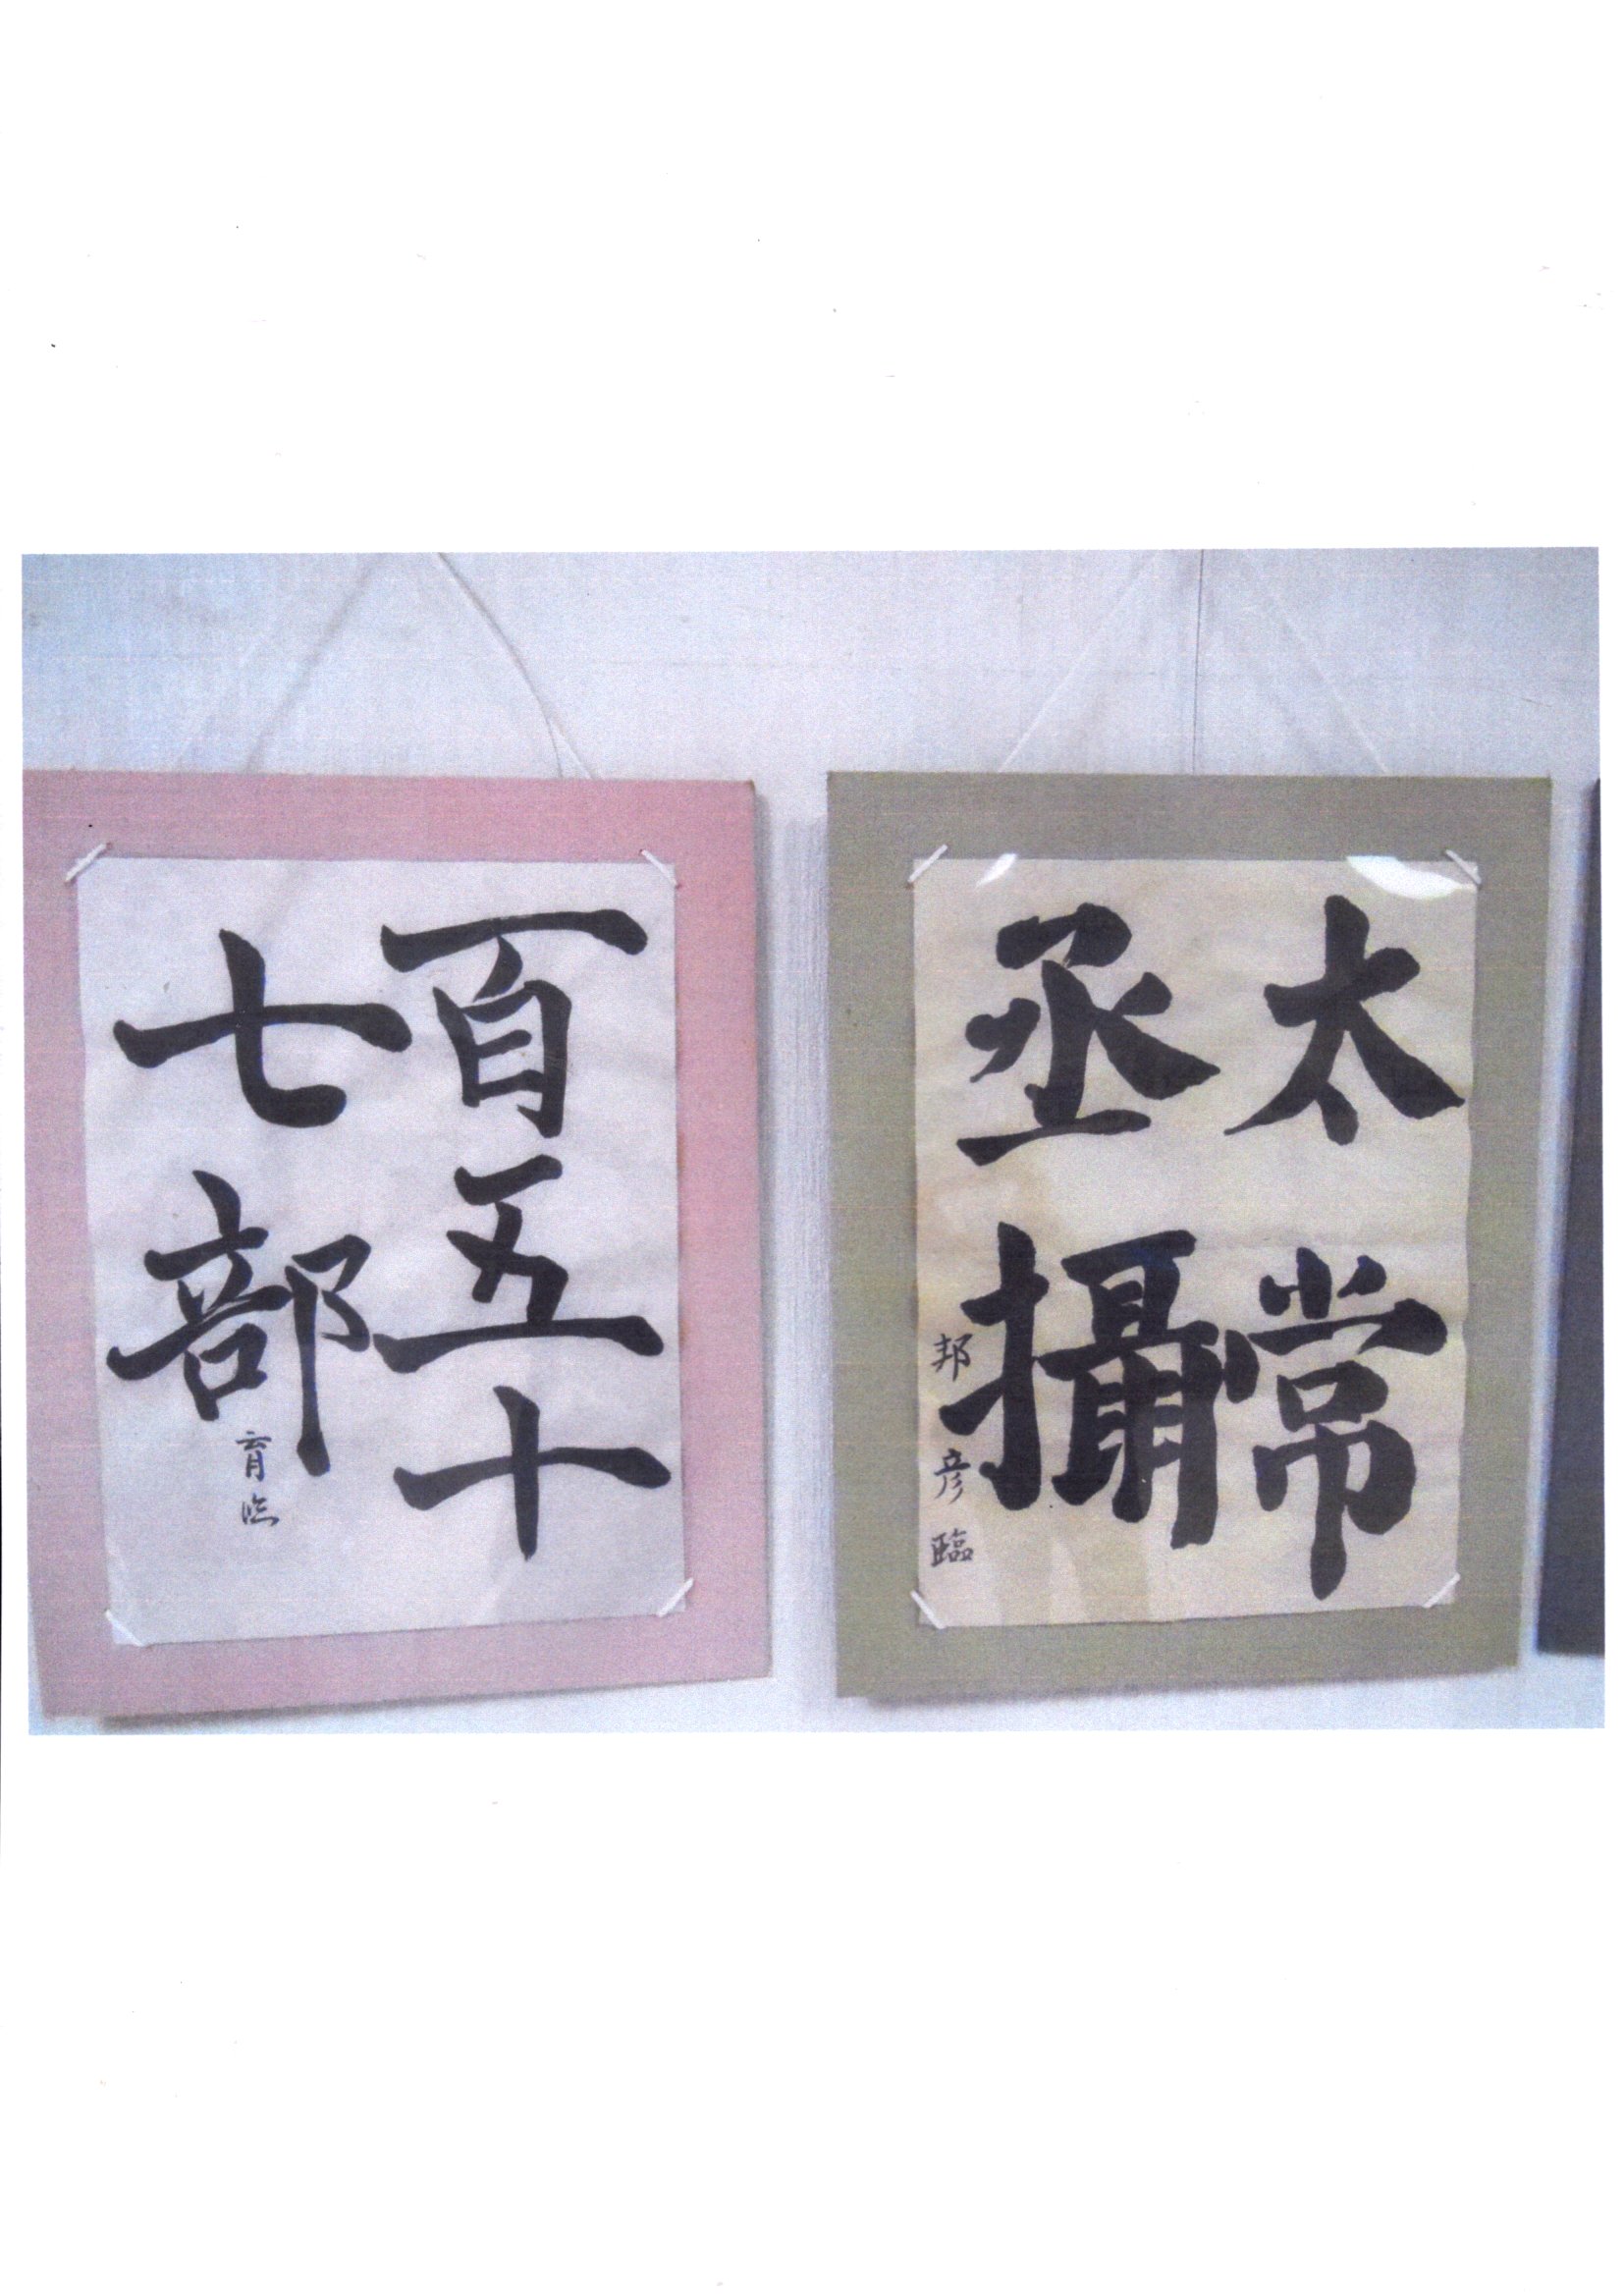 太常
丞攝
邦彦臨
百五十
七部
育臨